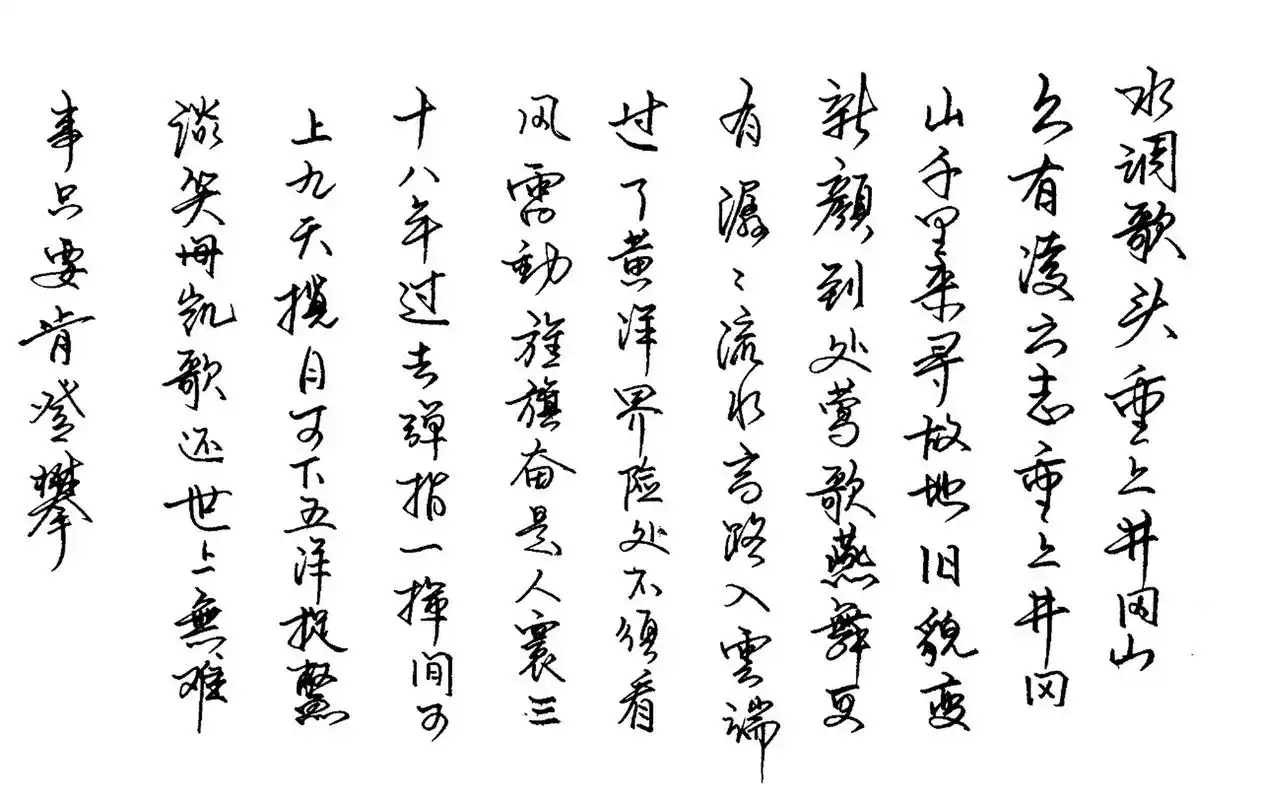 水调歌头重上井冈山
久有凌云志重上井冈
山千里来寻故地旧貌变
新顏到处莺歌燕舞更
有潺〻流水高路入雲端
过了黄洋界险处不须看
风雷動旌旗奋是人寰三
十八年过去弹指一挥间可
上九天揽月可下五洋捉鳖
谈笑凯歌还世上無难
事只要肯登攀